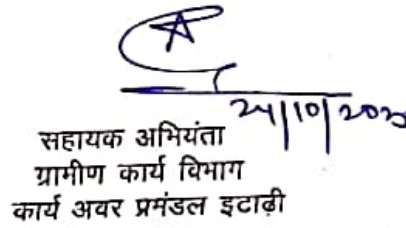 24/10/202
सहायक अभियंता
ग्रामीण कार्य विभाग
कार्य अवर प्रमंडल इटाढ़ी